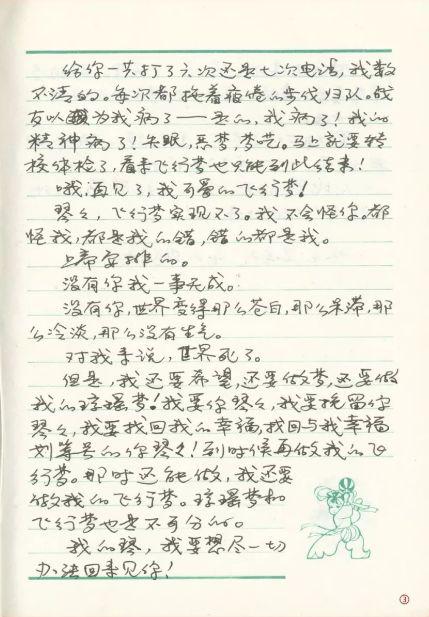 给你一共打了六次还是七次电话，我数
不清的。每次都拖着疲倦的步伐归队。战
友以为我病了——是的，我病了！我的
精神病了！失眠，恶梦，梦呓。马上就要转
校体检了，看来飞行梦也只能到此结束！
哦，再见了，我可爱的飞行梦！
琴々，飞行梦实现不了。我不会怪你。都
怪我，都是我的错，错的都是我。
上帝安排的。
没有你我一事无成。
没有你，世界变得那么苍白，那么呆滞，那
么冷淡，那么没有生气。
对我来说，世界死了。
但是，我还要希望，还要做梦，还要做
我的琼瑶梦！我要你琴々，我要挽留你
琴々，我要找回我的幸福，找回与我幸福
划等号的你琴々！到时候再做我的飞
行梦。那时还能做，我还要
做我的飞行梦。琼瑶梦和
飞行梦也是不可分的。
我的琴，我要想尽一切
办法回来见你！
③